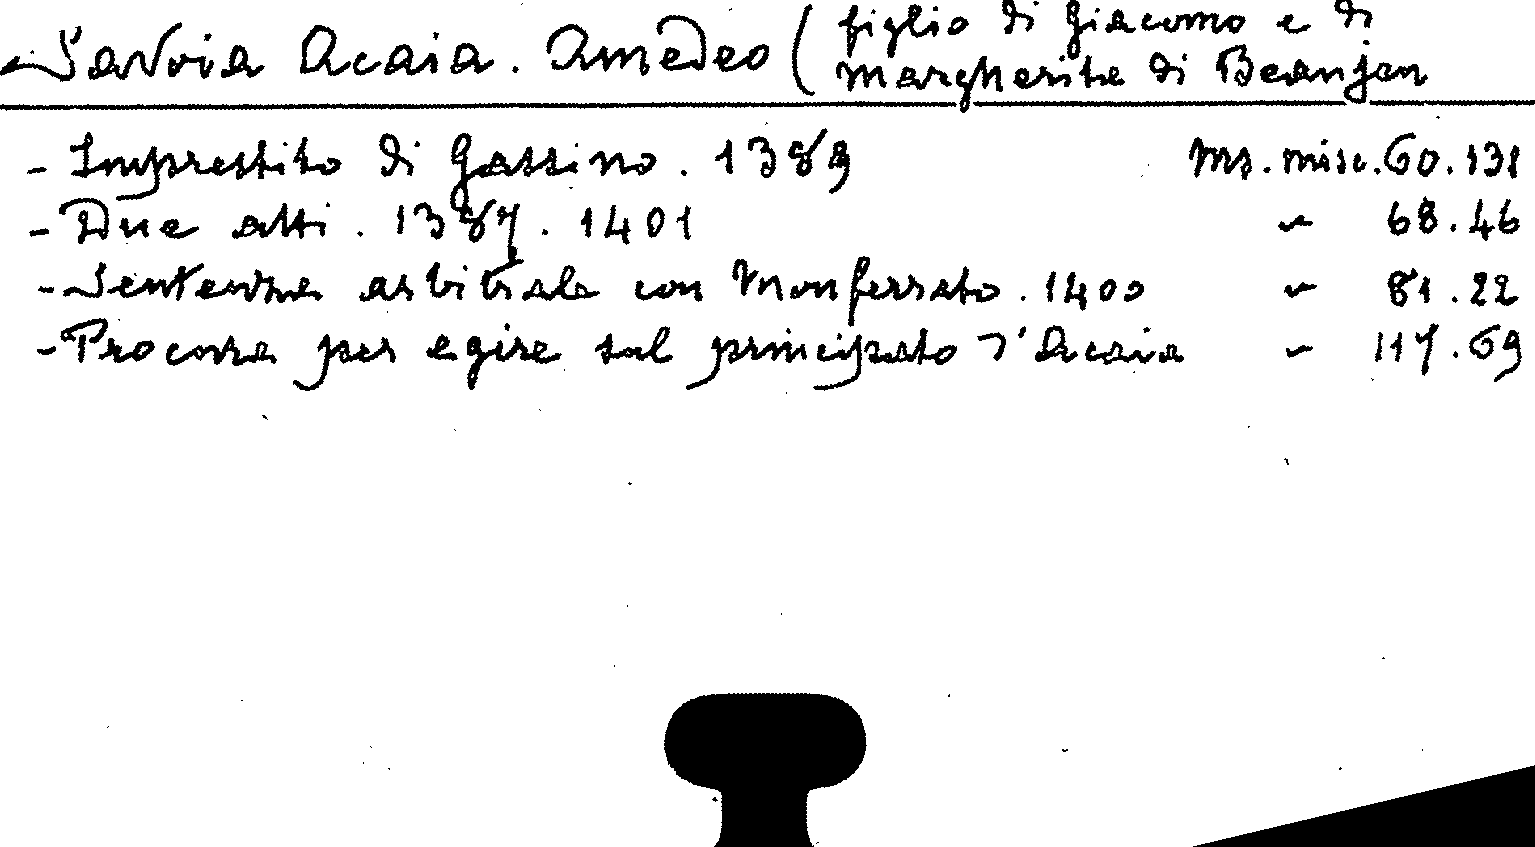 Savoia Acaia. Amedeo (figlio di Giacomo e di
Margherita di Beaujeu
- Imprestito di Gassino. 1389 Ms. misc. 60.131
- Due atti. 1387. 1401 " 68.46
- Sentenza arbitrale con Monferrato. 1400 " 81.22
- Procura per agire sul principato d'Acaia " 117.69